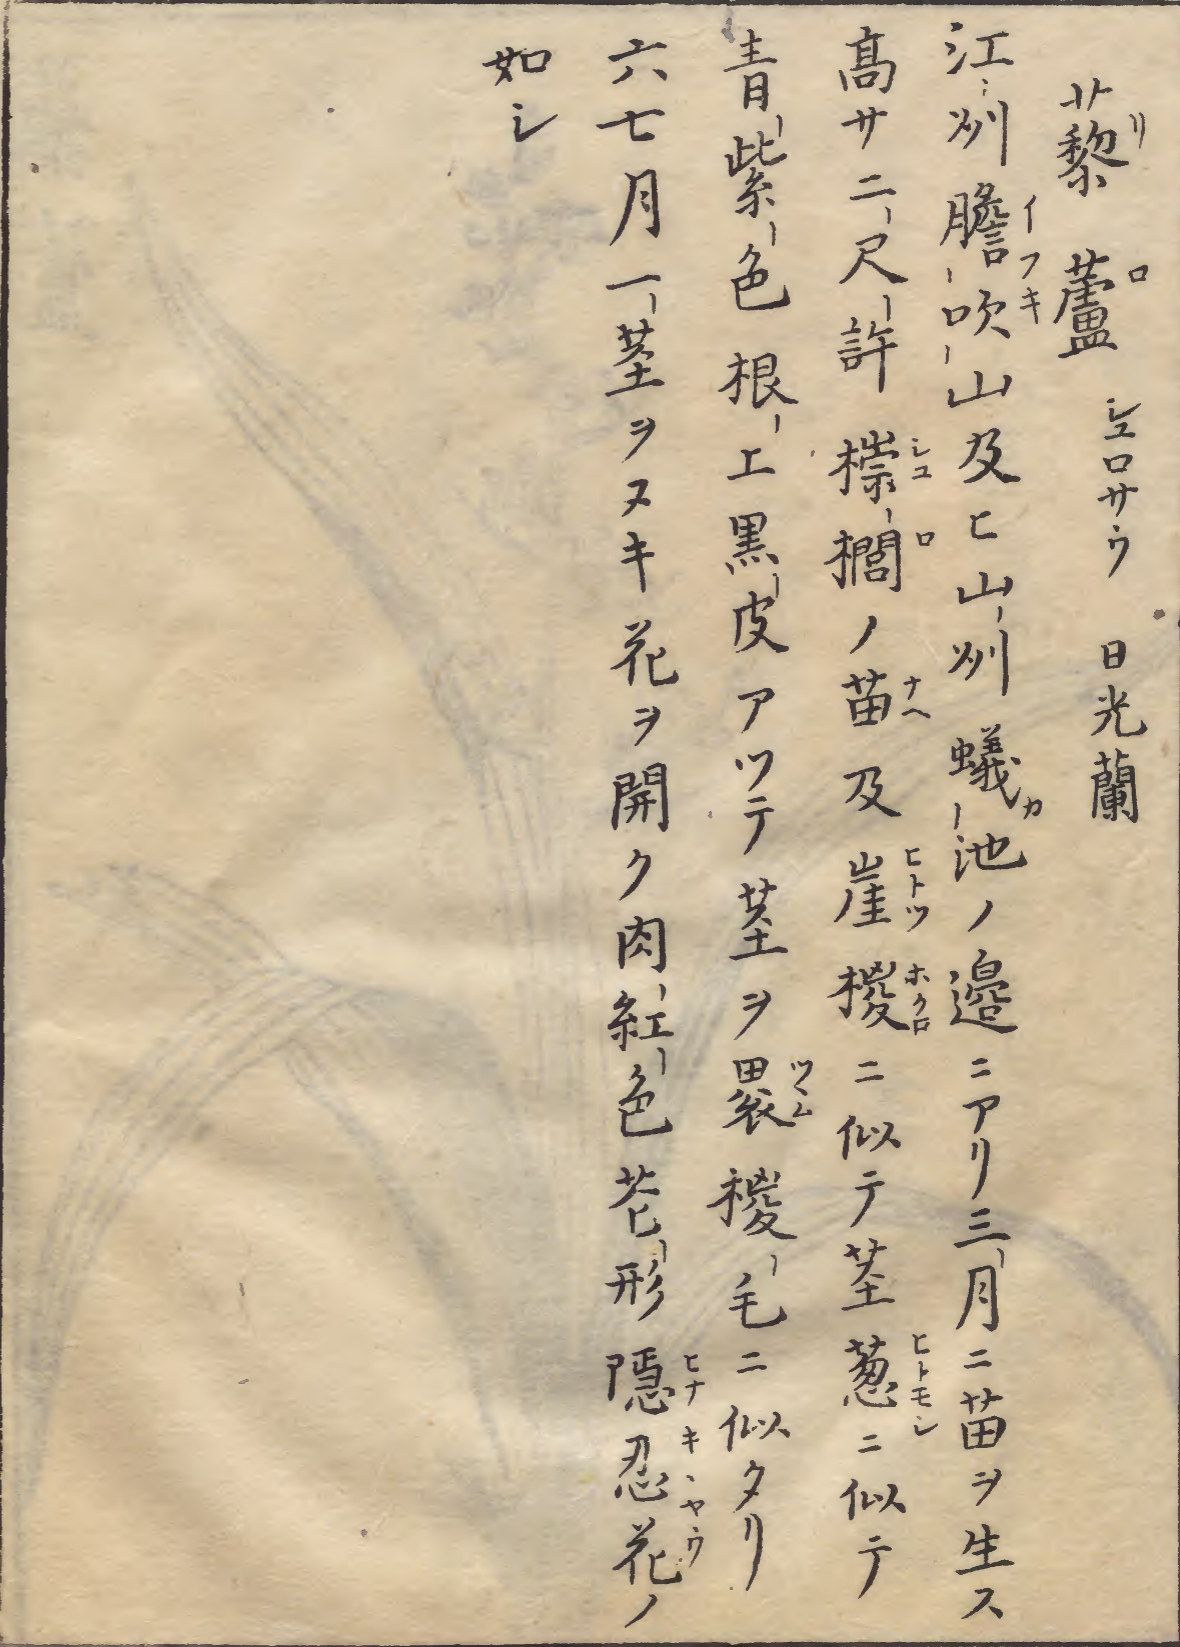 藜蘆 シユロサウ 日光蘭
江州膽吹山及ヒ山州蟻池ノ邉ニアリ三月ニ苗ヲ生ス
髙サ二尺許椶櫚ノ苗及崖椶ニ似テ茎葱ニ似テ
青紫色根上黒皮アツテ茎ヲ裹椶毛ニ似タリ
六七月一茎ヲヌキ花ヲ開ク肉紅色花形隠忍花ノ
如シ